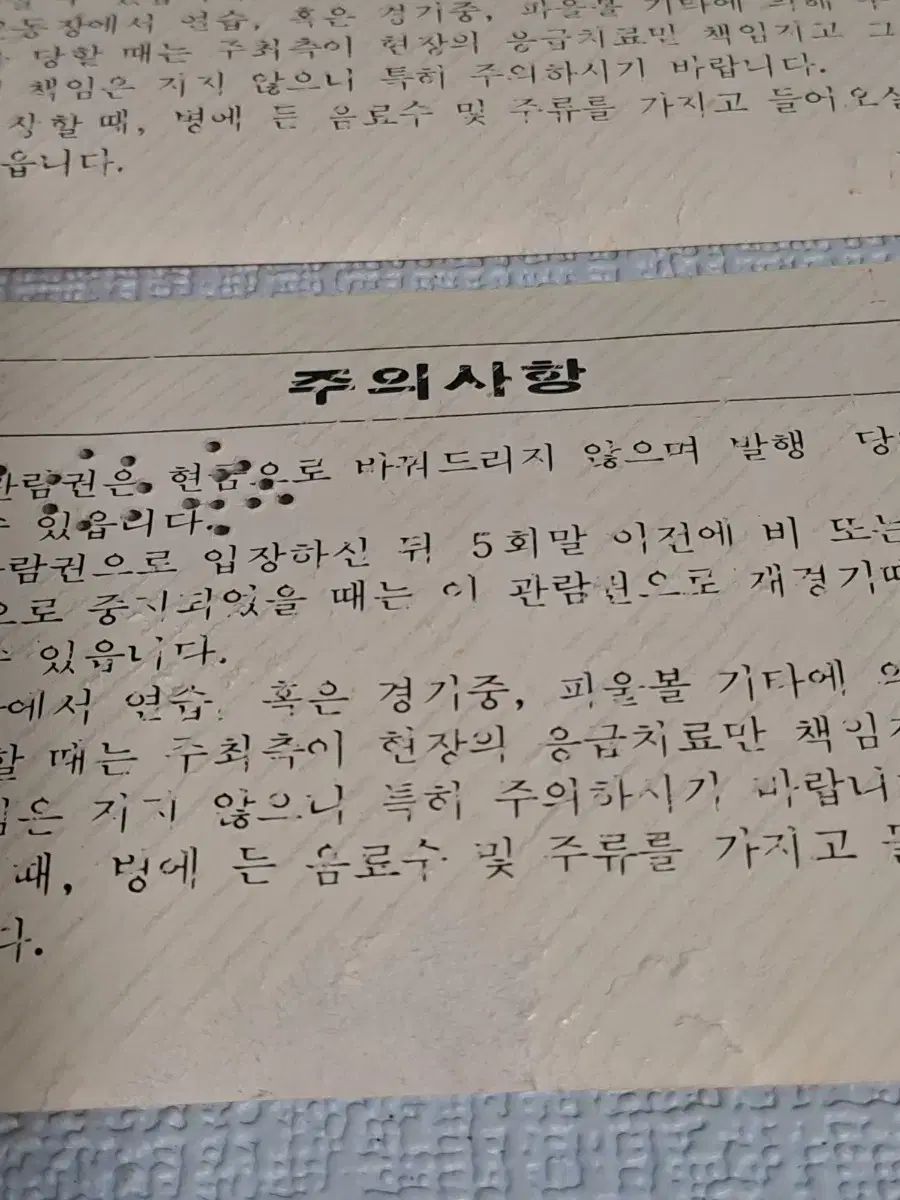 운동장에서 연습, 혹은 경기중, 파울볼 기타에 의해
당할 때는 주최측이 현장의 응급치료만 책임지고 그
책임은 지지 않으니 특히 주의하시기 바랍니다.
장할 때, 병에 든 음료수 및 주류를 가지고 들어오실
읍니다.
주의사항
관람권은 현금으로 바꿔드리지 않으며 발행 당
수 있읍니다.
람권으로 입장하신 뒤 5회말 이전에 비 또는
으로 중지되었을 때는 이 관람권으로 재경기때
수 있읍니다.
에서 연습, 혹은 경기중, 파울볼 기타에 의
할 때는 주최측이 현장의 응급치료만 책임지
임은 지지 않으니 특히 주의하시기 바랍니
때, 병에 든 음료수 및 주류를 가지고 들
다.